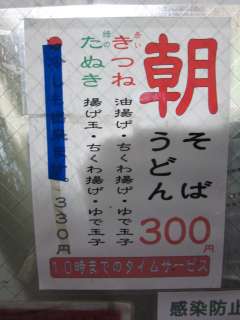 朝
そば
うどん
300円
赤い
きつね
油揚げ・ちくわ揚げ・ゆで玉子
緑の
たぬき
揚げ玉・ちくわ揚げ・ゆで玉子
330円
10時までのタイムサービス
感染防止